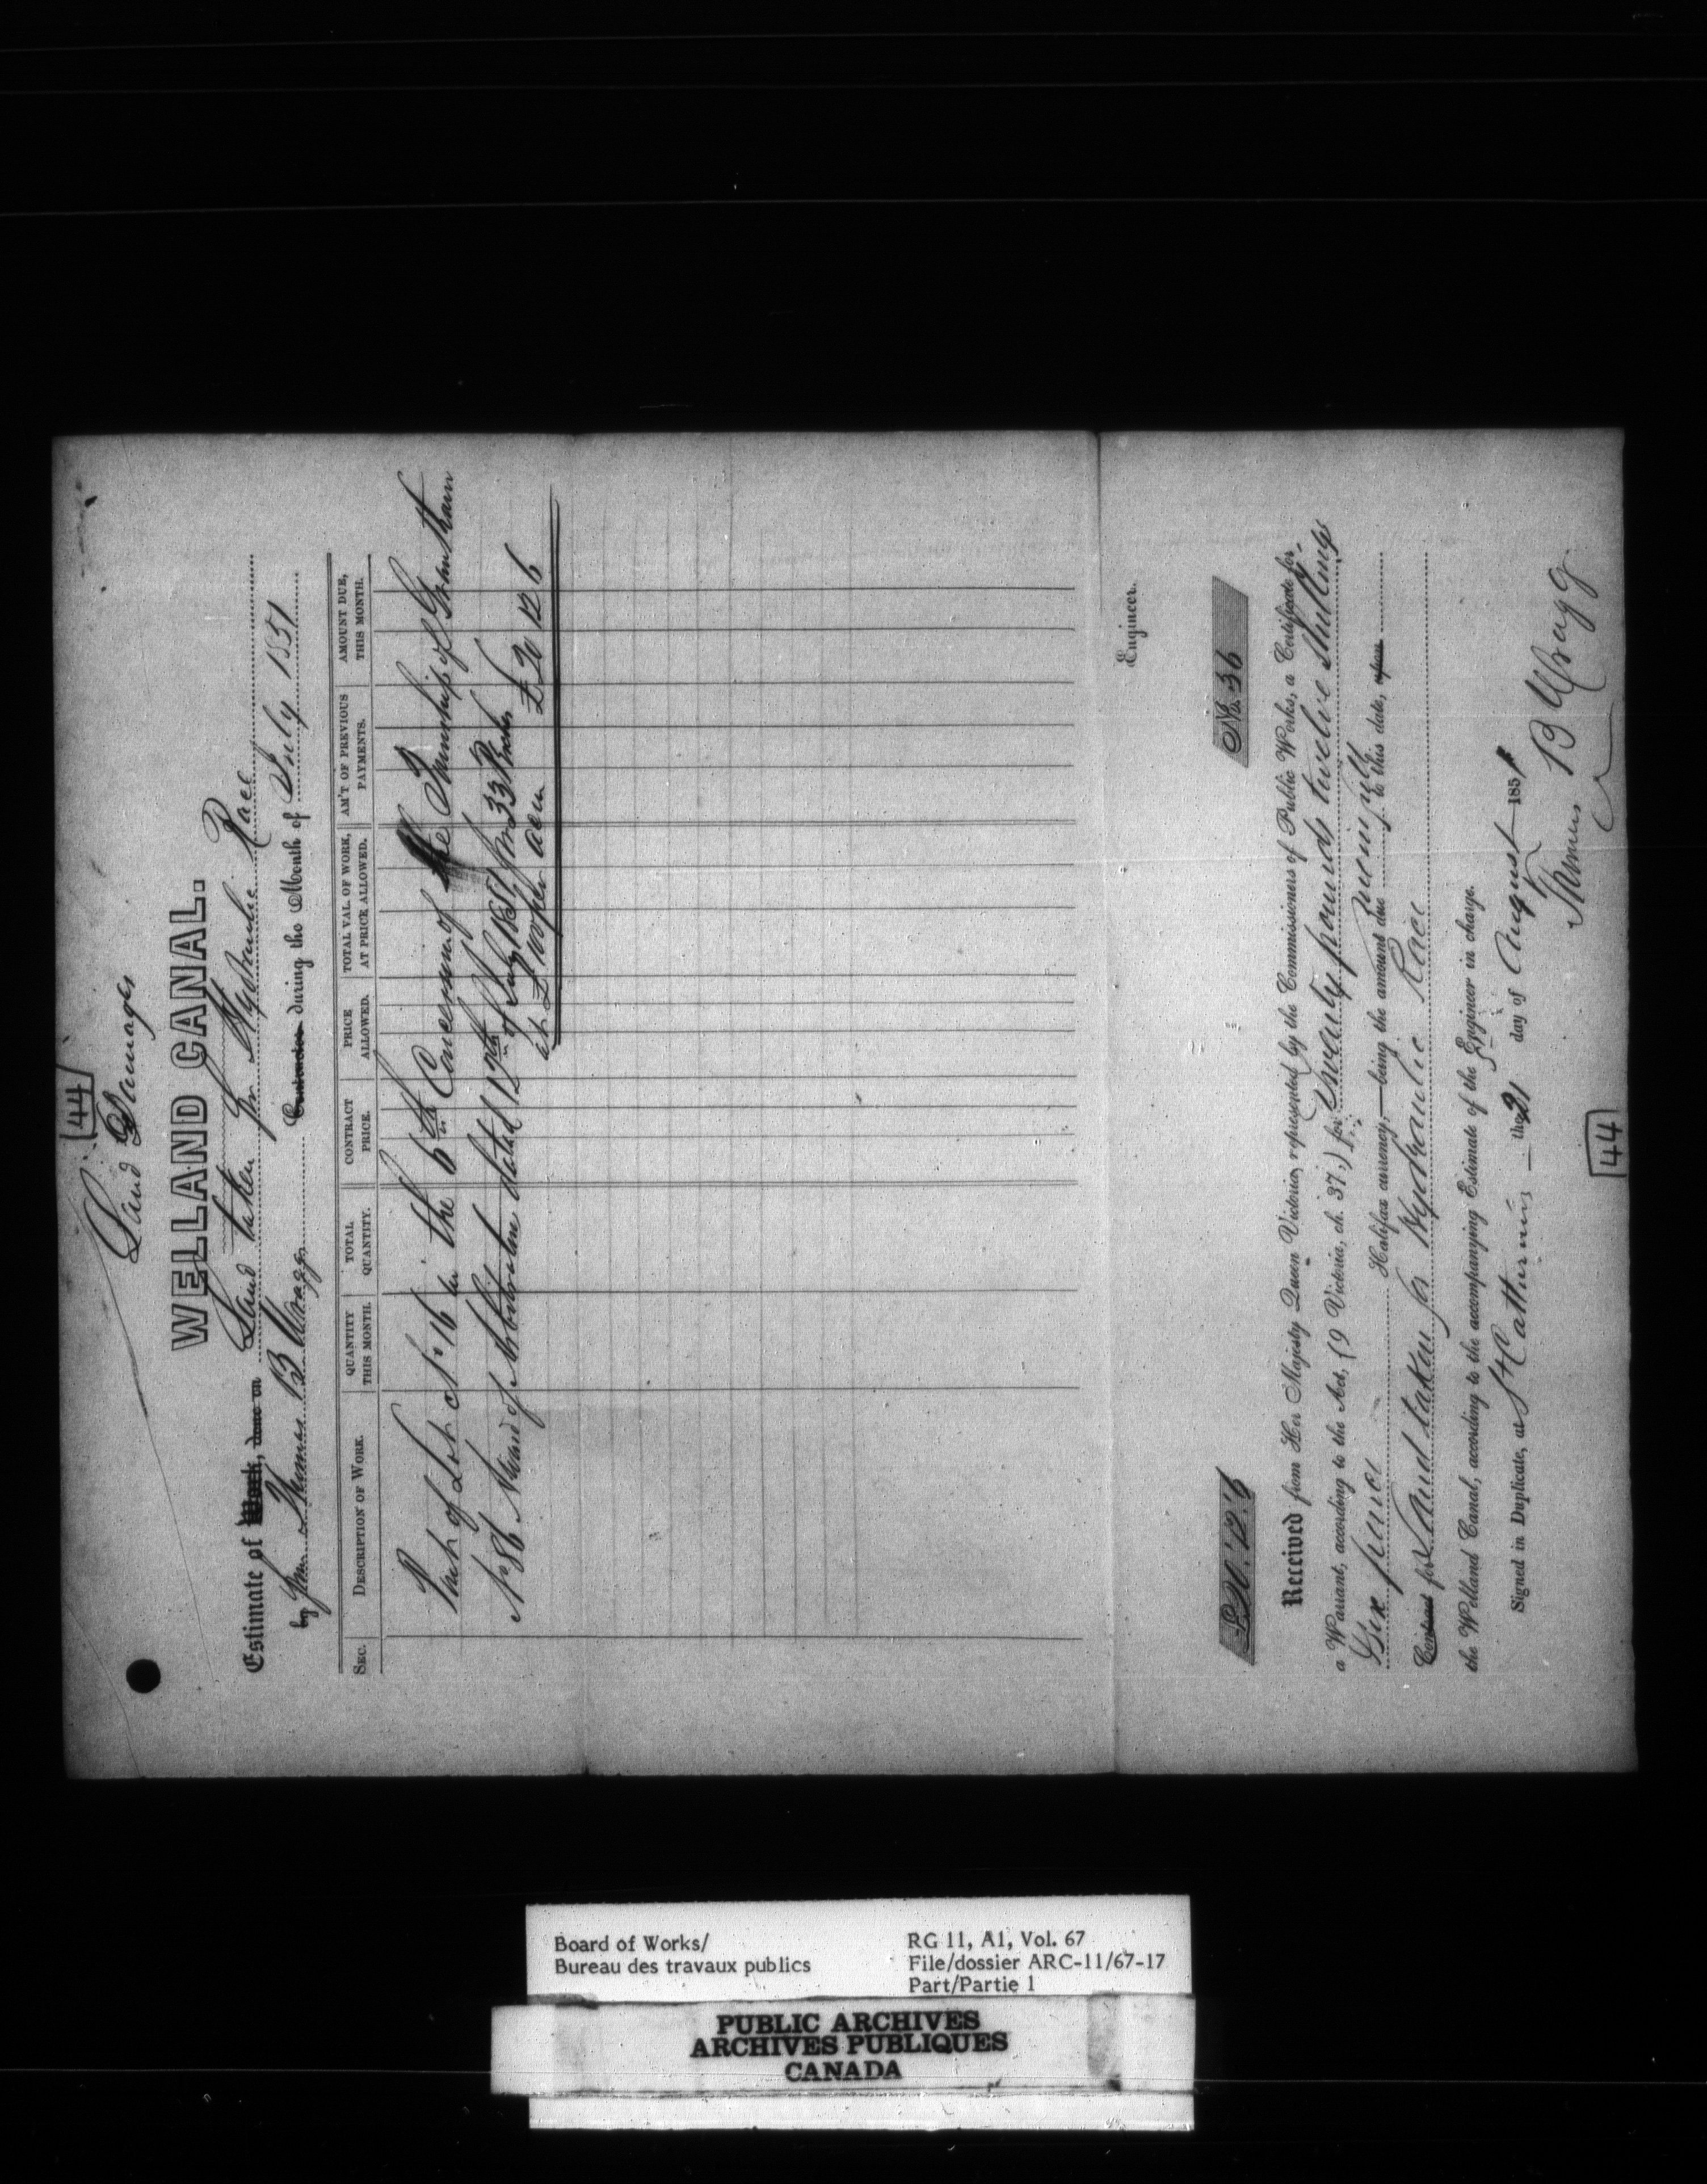 44
Land Damages
WELLAND CANAL.
Estimate of Work, done on Land taken for Hydraulic Race
by Thomas B Wragg Contractor during the Month of July 1851
SEC. DESCRIPTION OF WORK. QUANTITY THIS MONTH. TOTAL QUANTITY. CONTRACT PRICE. PRICE ALLOWED. TOTAL VAL. OF WORK, AT PRICE ALLOWED. AM'T OF PREVIOUS PAYMENTS. AMOUNT DUE, THIS MONTH.
Part of Lot No 16 in the 6th Concession of the Township of Grantham
No 86 Award of Arbitrators dated 12th of July 1851 for 33 Perches
at £100 per acre £20 12 6
Engineer.
£20.12.6 No. 36
Received from Her Majesty Queen Victoria, represented by the Commissioners of Public Works, a Certificate for
a Warrant, according to the Act, (9 Victoria, ch. 37,) for Twenty pounds twelve Shillings
Six pence Halifax currency,—being the amount due to this date, upon
Contract for Land taken for Hydraulic Race
the Welland Canal, according to the accompanying Estimate of the Engineer in charge.
Signed in Duplicate, at St Catherines the 21 day of August 1851
Thomas B Wragg
44
Board of Works/ RG 11, A1, Vol. 67
Bureau des travaux publics File/dossier ARC-11/67-17
Part/Partie 1
PUBLIC ARCHIVES
ARCHIVES PUBLIQUES
CANADA